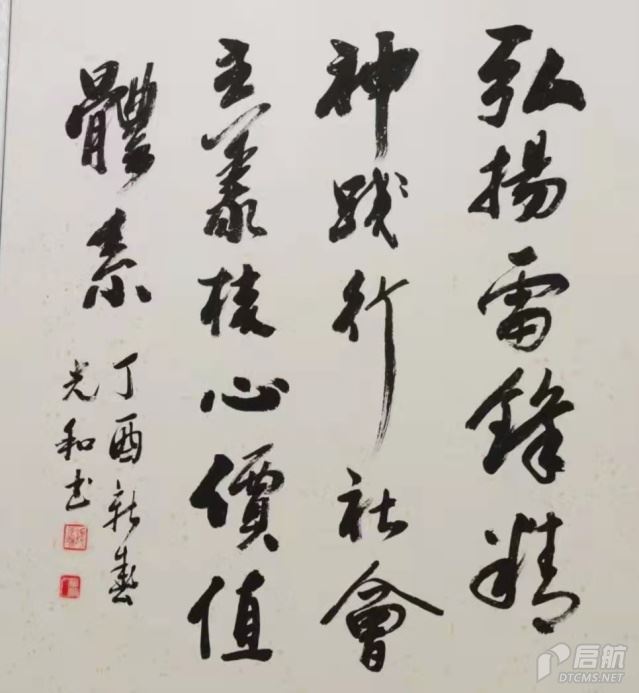 弘揚雷鋒精
神踐行社會
主義核心價值
體系
丁酉新春
光和书
启航
DTCMS.NET